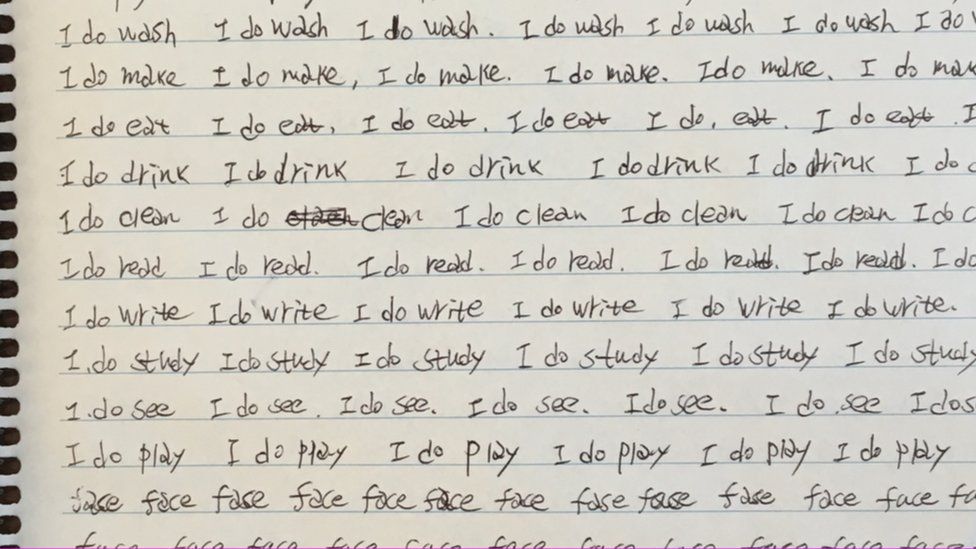 I do wash I do wash I do wash. I do wash I do wash I do wash I do
I do make I do make, I do make. I do make. I do make. I do make
I do eat I do eat, I do eat. I do eat I do, eat. I do eat I
I do drink I do drink I do drink I do drink I do drink I do
I do clean I do clean I do clean I do clean I do clean I do c
I do read I do read. I do read. I do read. I do read. I do read. I do
I do write I do write I do write I do write I do write I do write.
1.do study I do study I do study I do study I do study I do study
1.do see I do see. I do see. I do see. I do see. I do see I do s
I do play I do play I do play I do play I do play I do play
fase face fase face face face face fase fase fase face face fa